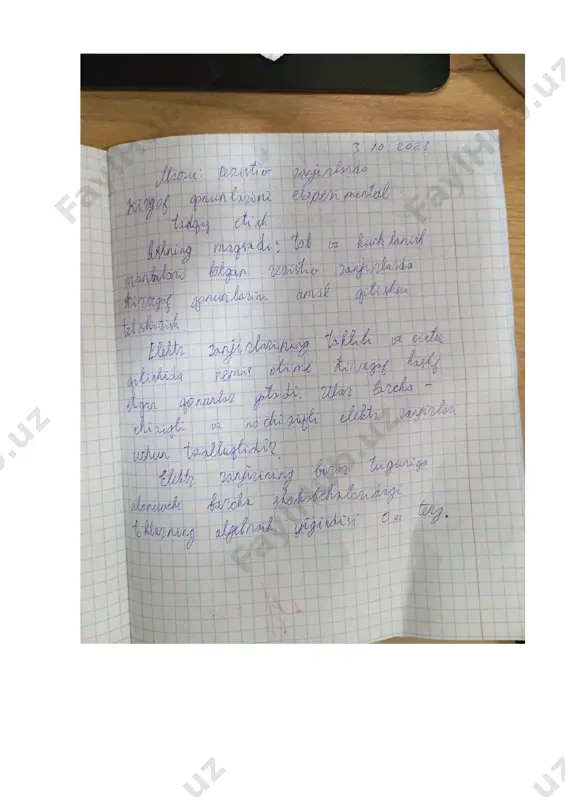 3 10 2023
Mavzu: Rezistiv zanjirlarda
Kirxgof qonunlarini eksperimental
tadqiq etish
Ishning maqsadi: tok va kuchlanish
manbalari bolgan rezistiv zanjirlarda
Kirxgof qonunlarini amal qilishini
tekshirish.
Elektr zanjirlarining tahlili va sintez
qilishda nemis olimi Kirxgof kashf
etgan qonunlar yotadi. Ular barcha -
chiziqli va nochiziqli elektr zanjirlari
uchun taalluqlidir.
Elektr zanjirining biror tuguniga
ulanuvchi barcha shahobchalaridagi
toklarning algebraik yigindisi 0 ga teng.
FayllHub.uz